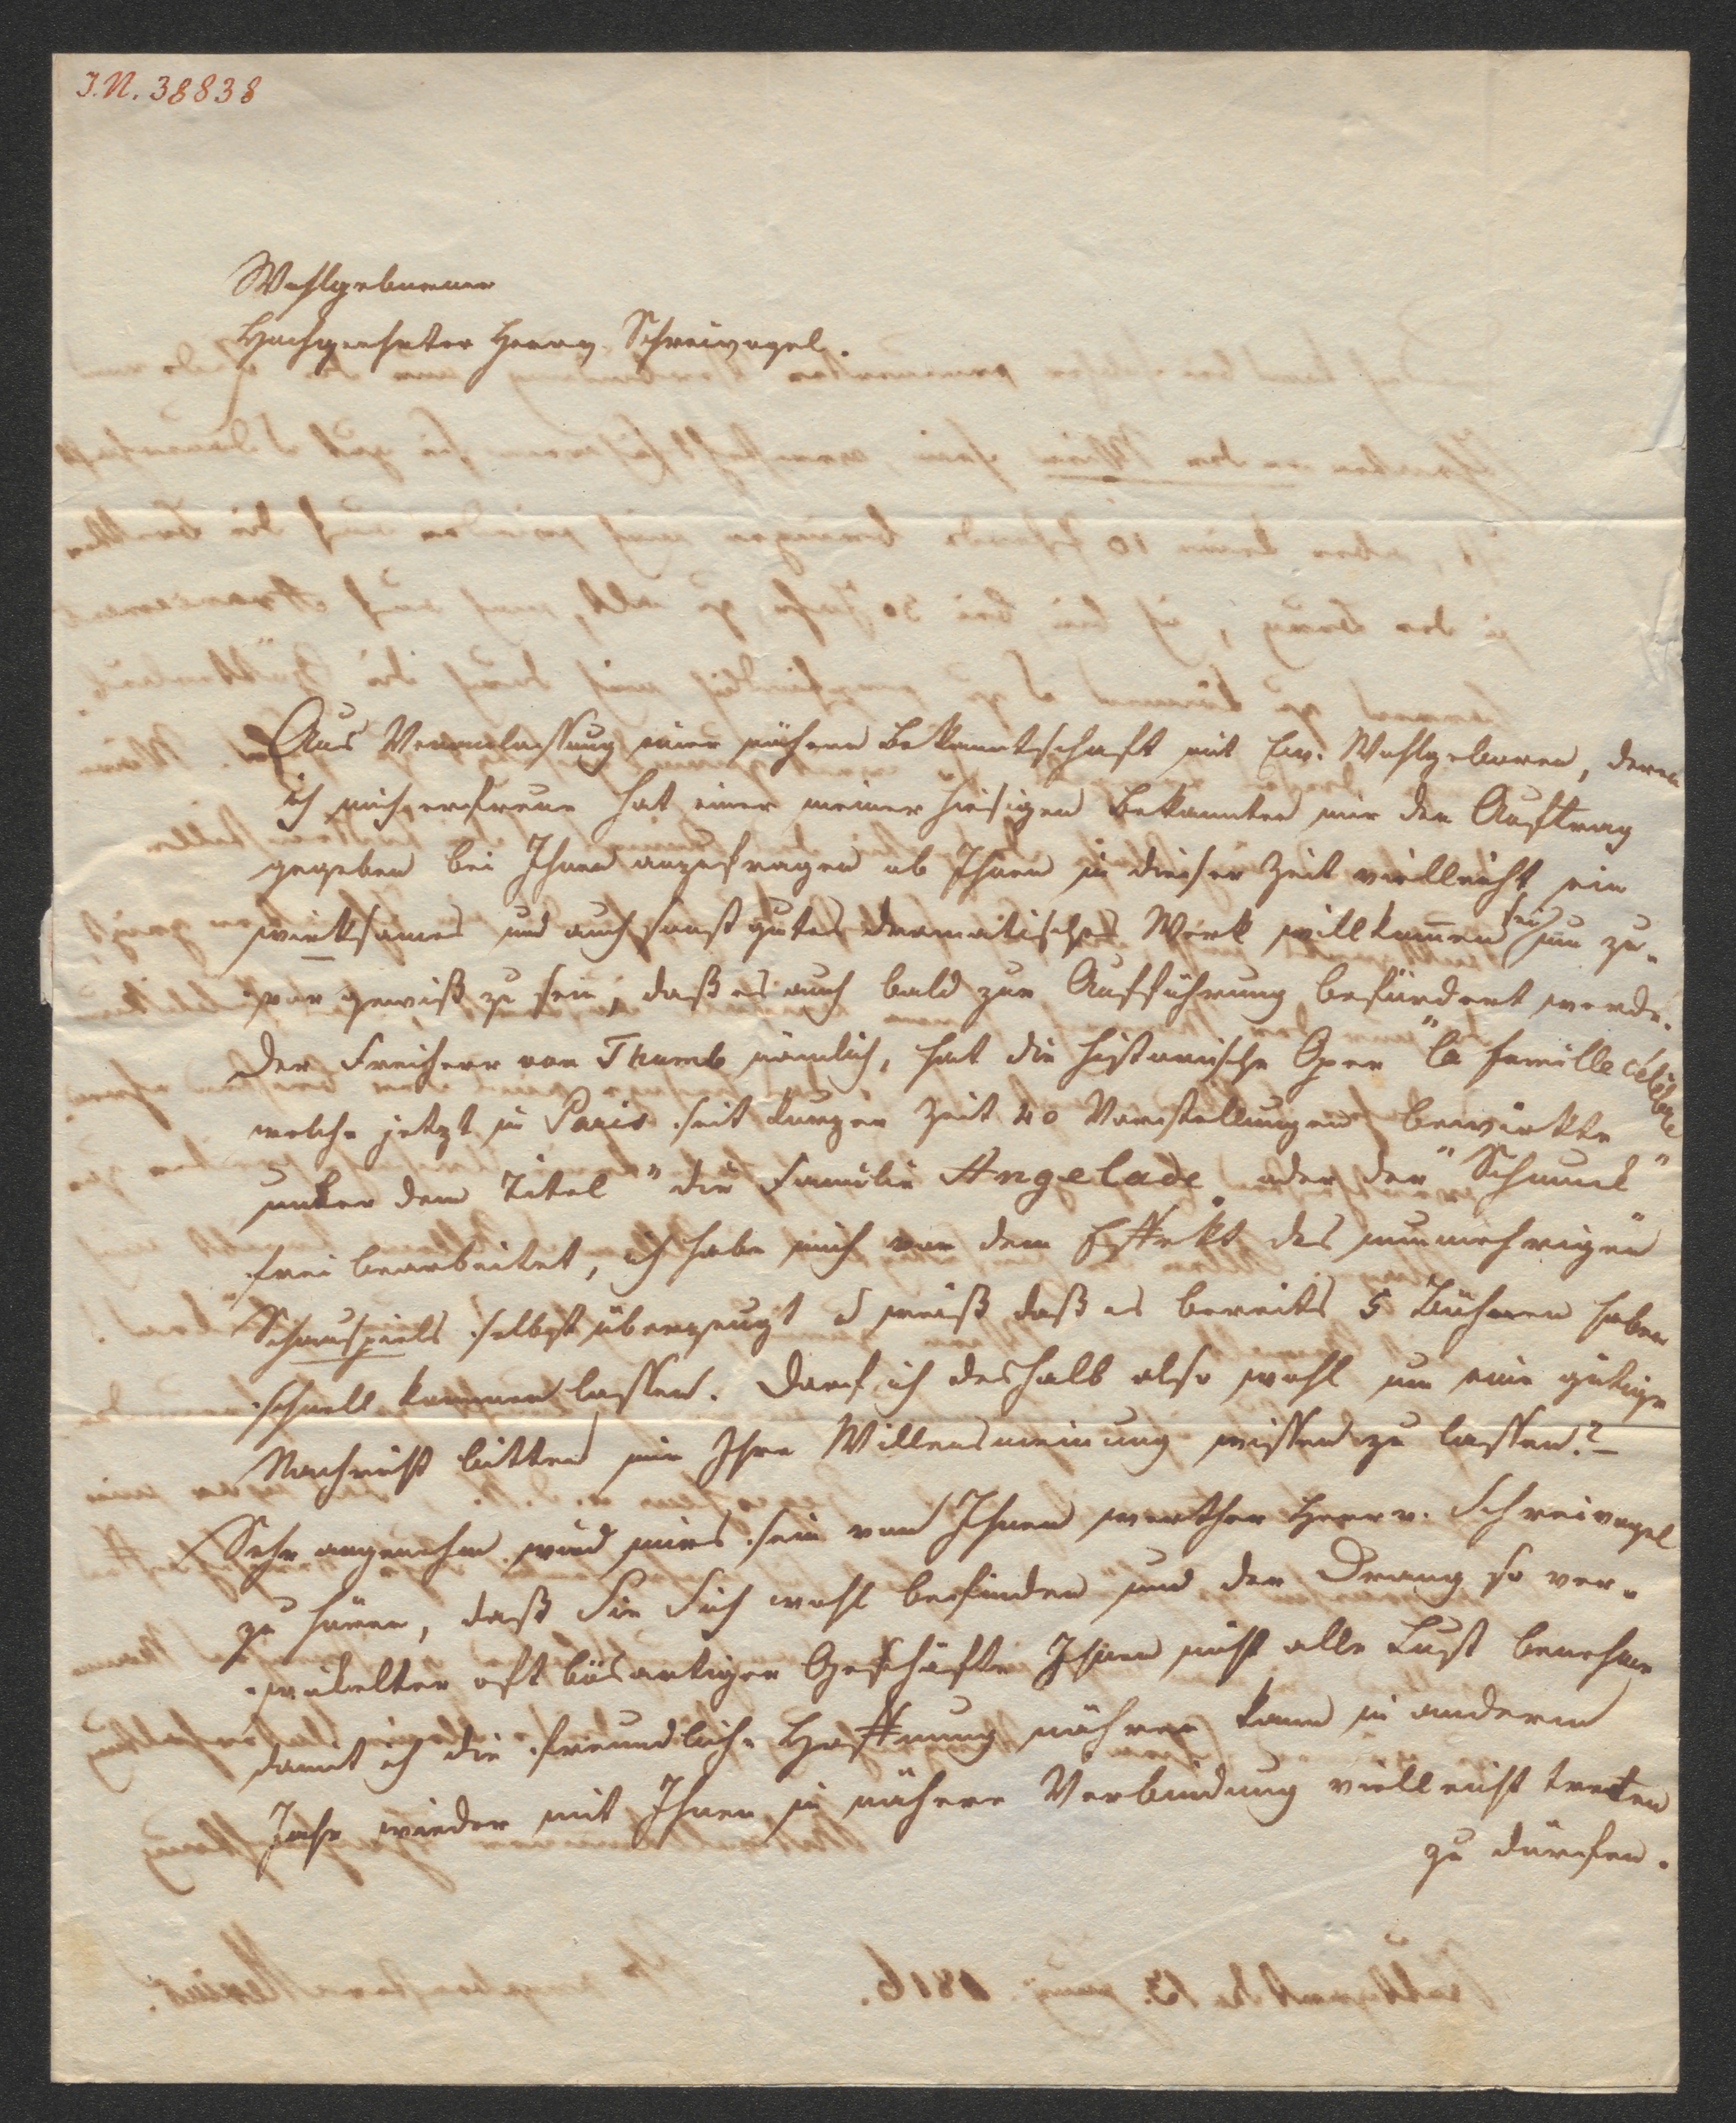 I.N. 38838
Wohlgeborener
Hochgeehrter Herr v. Schreivogel.
Aus Veranlassung einer nähern Bekanntschaft mit Ew. Wohlgeboren, deren
ich mich erfreue hat einer meiner hiesigen Bekannten mir den Auftrag
gegeben bei Ihnen anzufragen ob Ihnen in dieser Zeit vielleicht ein
wirksames und auch sonst gutes dramatisches Werk willkom̅en sei um zu-
vor gewiß zu sein, daß es auch bald zur Aufführung befördert werde.
Der Freiherr von Thumb nämlich, hat die historische Oper "la famille célèbre"
welche jetzt in Paris seit kurzer Zeit 40 Vorstellungen bewirkte
unter dem Titel "die Familie Angelade" oder der "Schmuck"
frei bearbeitet, ich habe mich von dem Effekt des nunmehrigen
Schauspiels selbst überzeugt u weiß daß es bereits 5 Bühnen haben
schnell kommen lassen. Darf ich deshalb also wohl um eine gütige
Nachricht bitten mir Ihre Willensmeinung wissen zu lassen? –
Sehr angenehm wird mirs sein von Ihnen werther Herr v. Schreivogel
zu hören, daß Sie Sich wohl befinden und der Drang so ver-
wickelter oft bösartiger Geschäfte Ihnen nicht alle Lust benehme
damit ich die freundliche Hoffnung nähren kann in anderem
Jahr wieder mit Ihnen in nähere Verbindung vielleicht treten
zu dürfen.